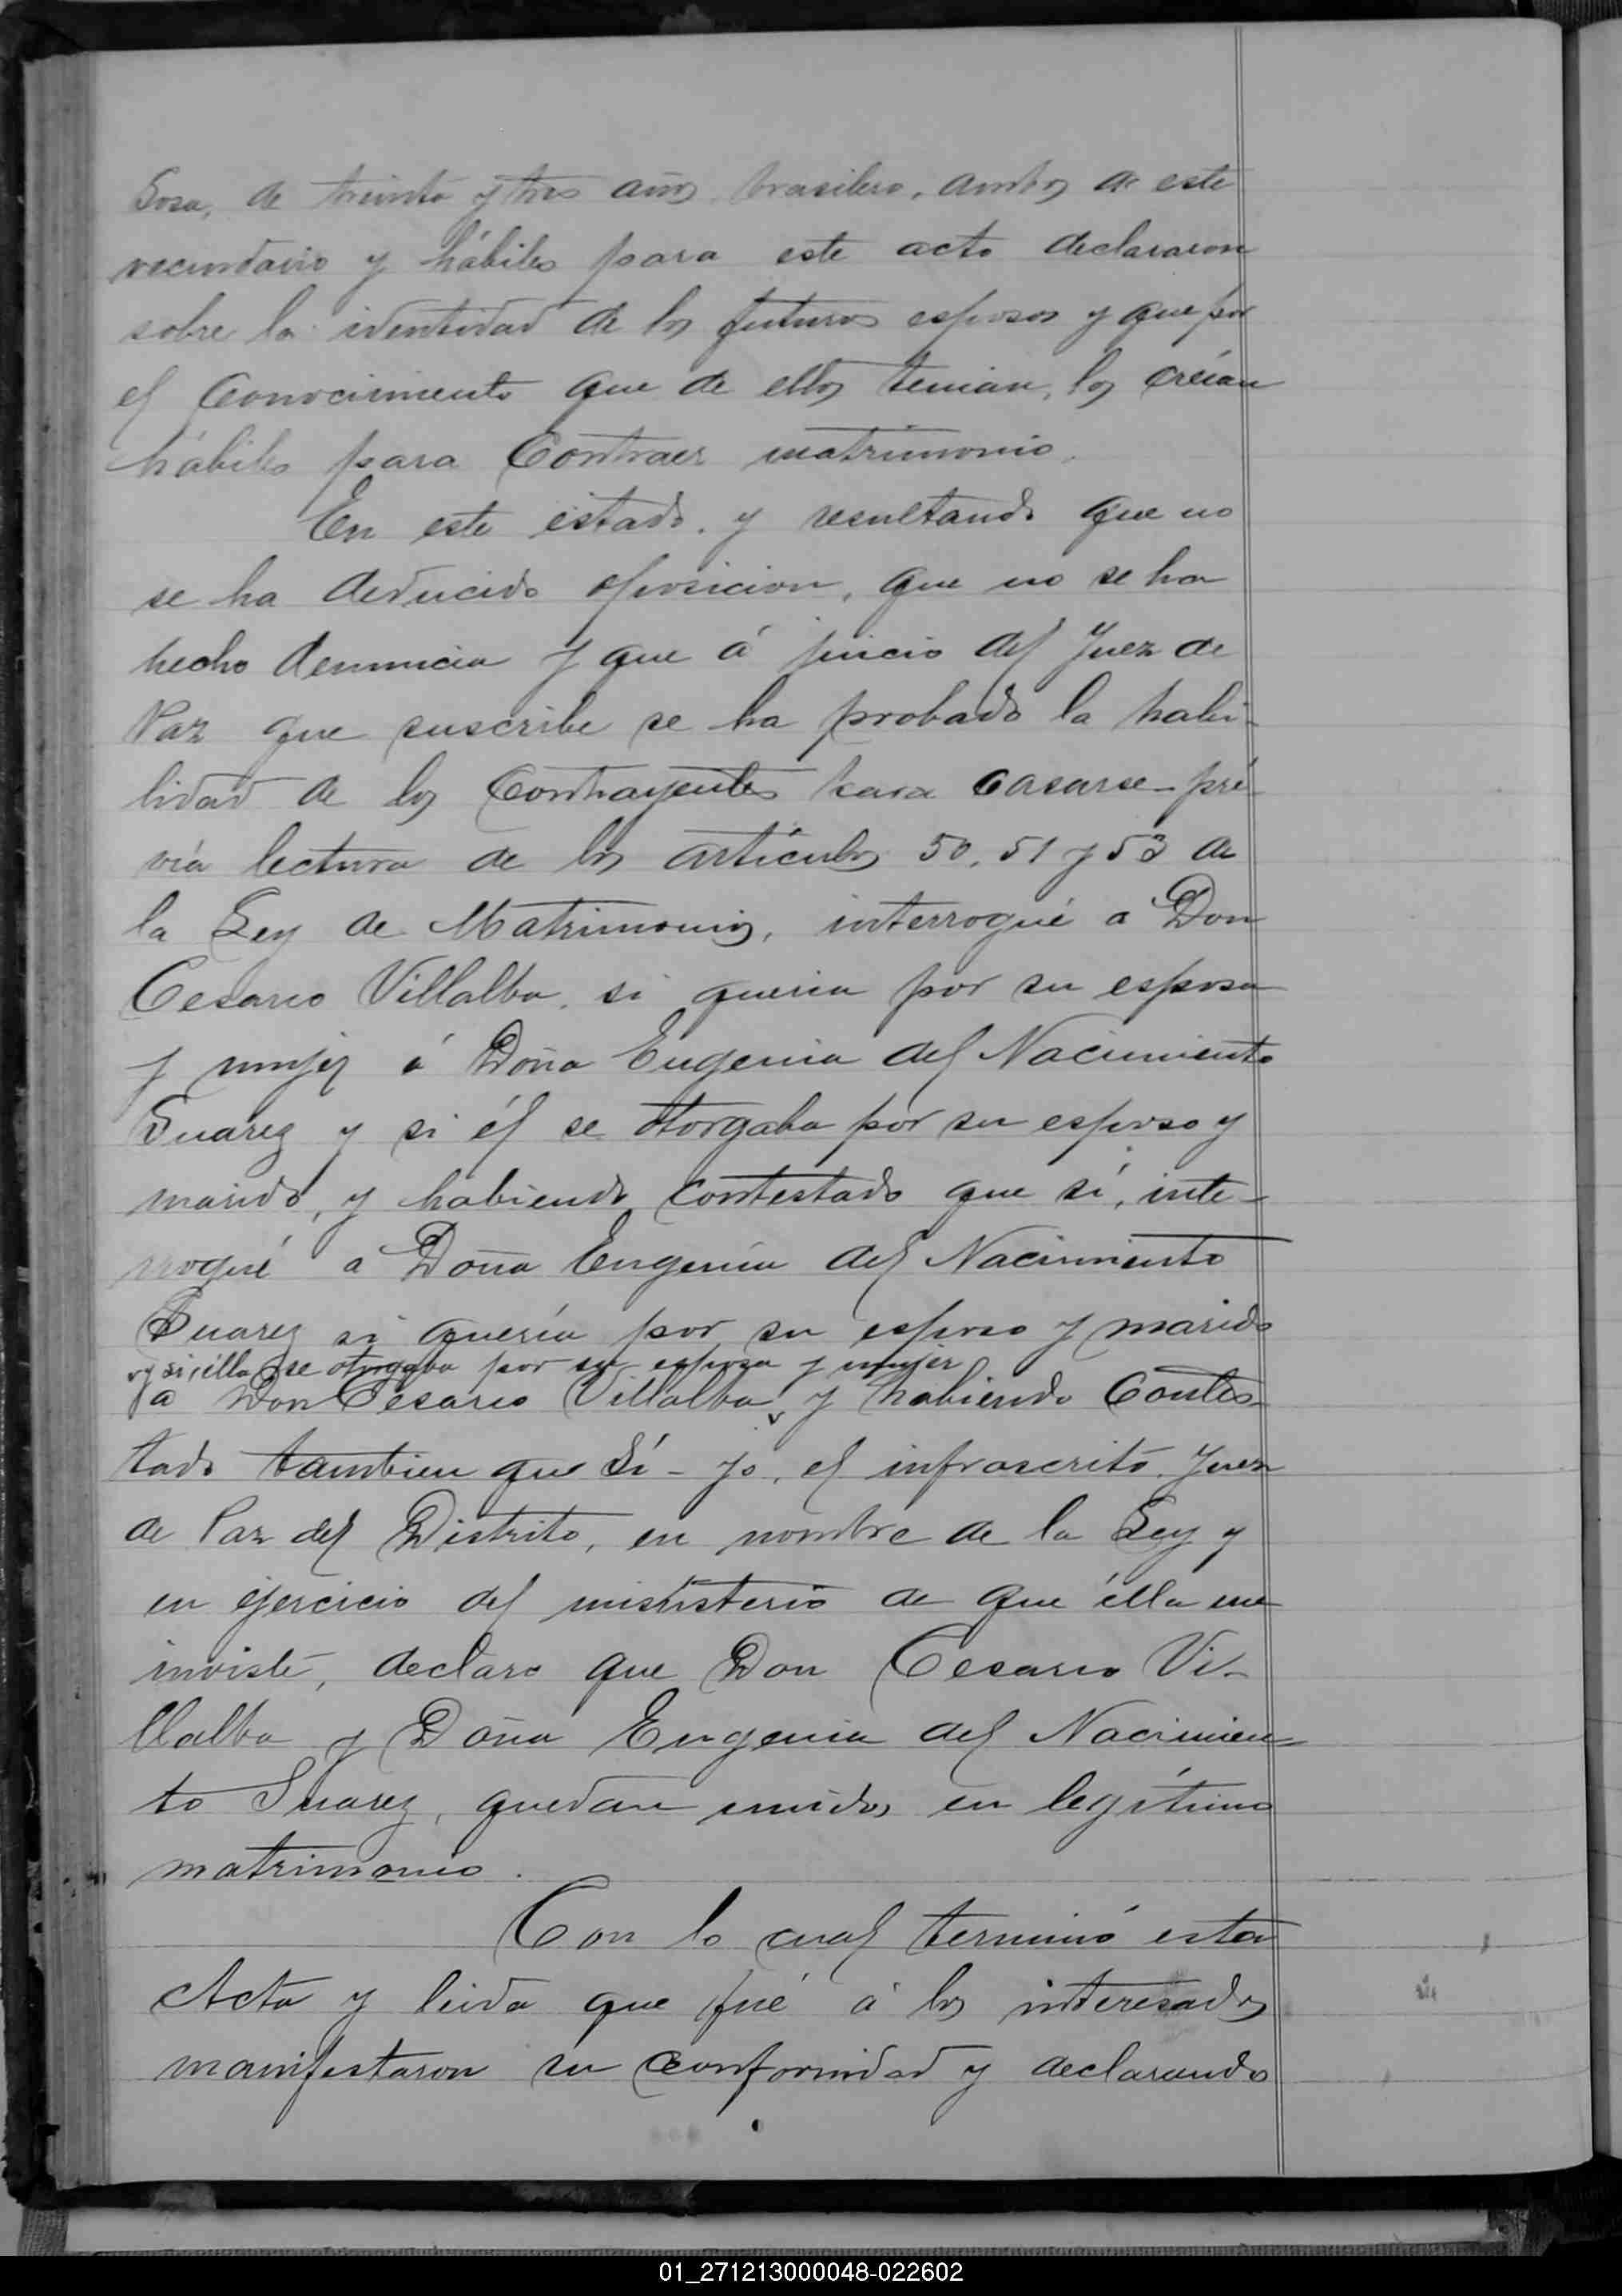 Sosa, de treinta y tres años, brasilero, ambos de este
vecindario y hábiles para este acto declararon
sobre la identidad de los futuros esposos y que por
el Conocimiento que de ellos tenian, los creían
hábiles para Contraer matrimonio.
En este estado, y resultando que no
se ha deducido oposicion, que no se ha
hecho denuncia y que á juicio del Juez de
Paz que suscribe se ha probado la habi-
lidad de los Contrayentes para casarse - pré-
via lectura de los artículos 50, 51 y 53 de
la Ley de Matrimonios, interrogué a Don
Cesareo Villalba, si queria por su esposa
y mujer á Doña Eugenia del Nacimiento
Suarez y si él se otorgaba por su esposo y
marido, y habiendo contestado que sí, inte-
rrogué a Doña Eugenia del Nacimiento
Suarez si quería por su esposo y marido
y si élla se otorgaba por su esposa y mujer
a Don Cesareo Villalba, y habiendo Contes-
tado tambien que Sí - yo, el infrascrito Juez
de Paz del Distrito, en nombre de la Ley y
en ejercicio del ministerio de que élla me
inviste, declaro que Don Cesareo Vi-
llalba y Doña Eugenia del Nacimien-
to Suarez, quedan unidos en legítimo
matrimonio.
Con lo cual terminó esta
Acta y leida que fué á los interesados
manifestaron su conformidad y declarando
01_271213000048-022602